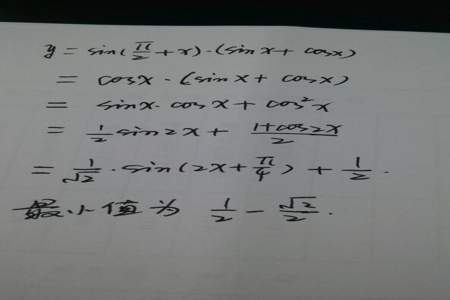 y = sin(π/2 + x)·(sin x + cos x)
= cos x · (sin x + cos x)
= sin x · cos x + cos²x
= 1/2 sin 2x + (1+cos 2x)/2
= 1/√2 · sin(2x + π/4) + 1/2 .
最小值为 1/2 − √2/2 .